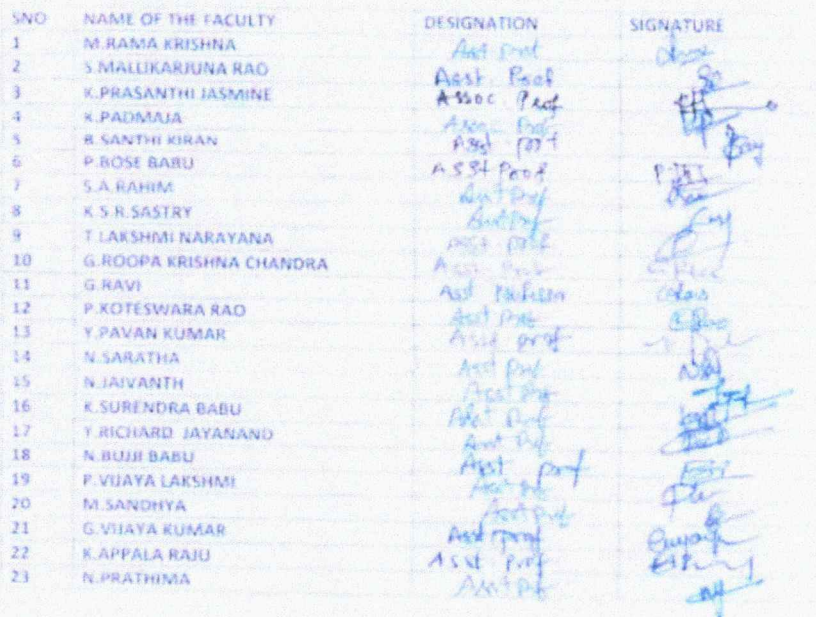 SNO NAME OF THE FACULTY DESIGNATION SIGNATURE
1 M.RAMA KRISHNA Asst Prof
2 S.MALLIKARJUNA RAO Asst. Prof
3 K.PRASANTHI JASMINE Assoc. Prof
4 K.PADMAJA Assoc. Prof
5 B.SANTHI KIRAN Asst prof
6 P.BOSE BABU Asst Prof
7 S.A.RAHIM Asst Prof
8 K.S.R.SASTRY Asst Prof
9 T.LAKSHMI NARAYANA Asst prof
10 G.ROOPA KRISHNA CHANDRA Asst. Prof
11 G.RAVI Asst Professor
12 P.KOTESWARA RAO Asst Prof
13 Y.PAVAN KUMAR Asst prof
14 N.SARATHA Asst Prof
15 N.JAIVANTH Asst Prof
16 K.SURENDRA BABU Asst Prof
17 Y.RICHARD JAYANAND Asst Prof
18 N.BUJJI BABU Asst prof
19 P.VIJAYA LAKSHMI Asst Prof
20 M.SANDHYA Asst Prof
21 G.VIJAYA KUMAR Asst prof
22 K.APPALA RAJU Asst. Prof
23 N.PRATHIMA Asst Prof